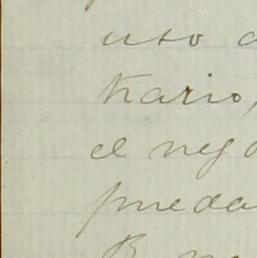 uso
trario,
el neg
pueda